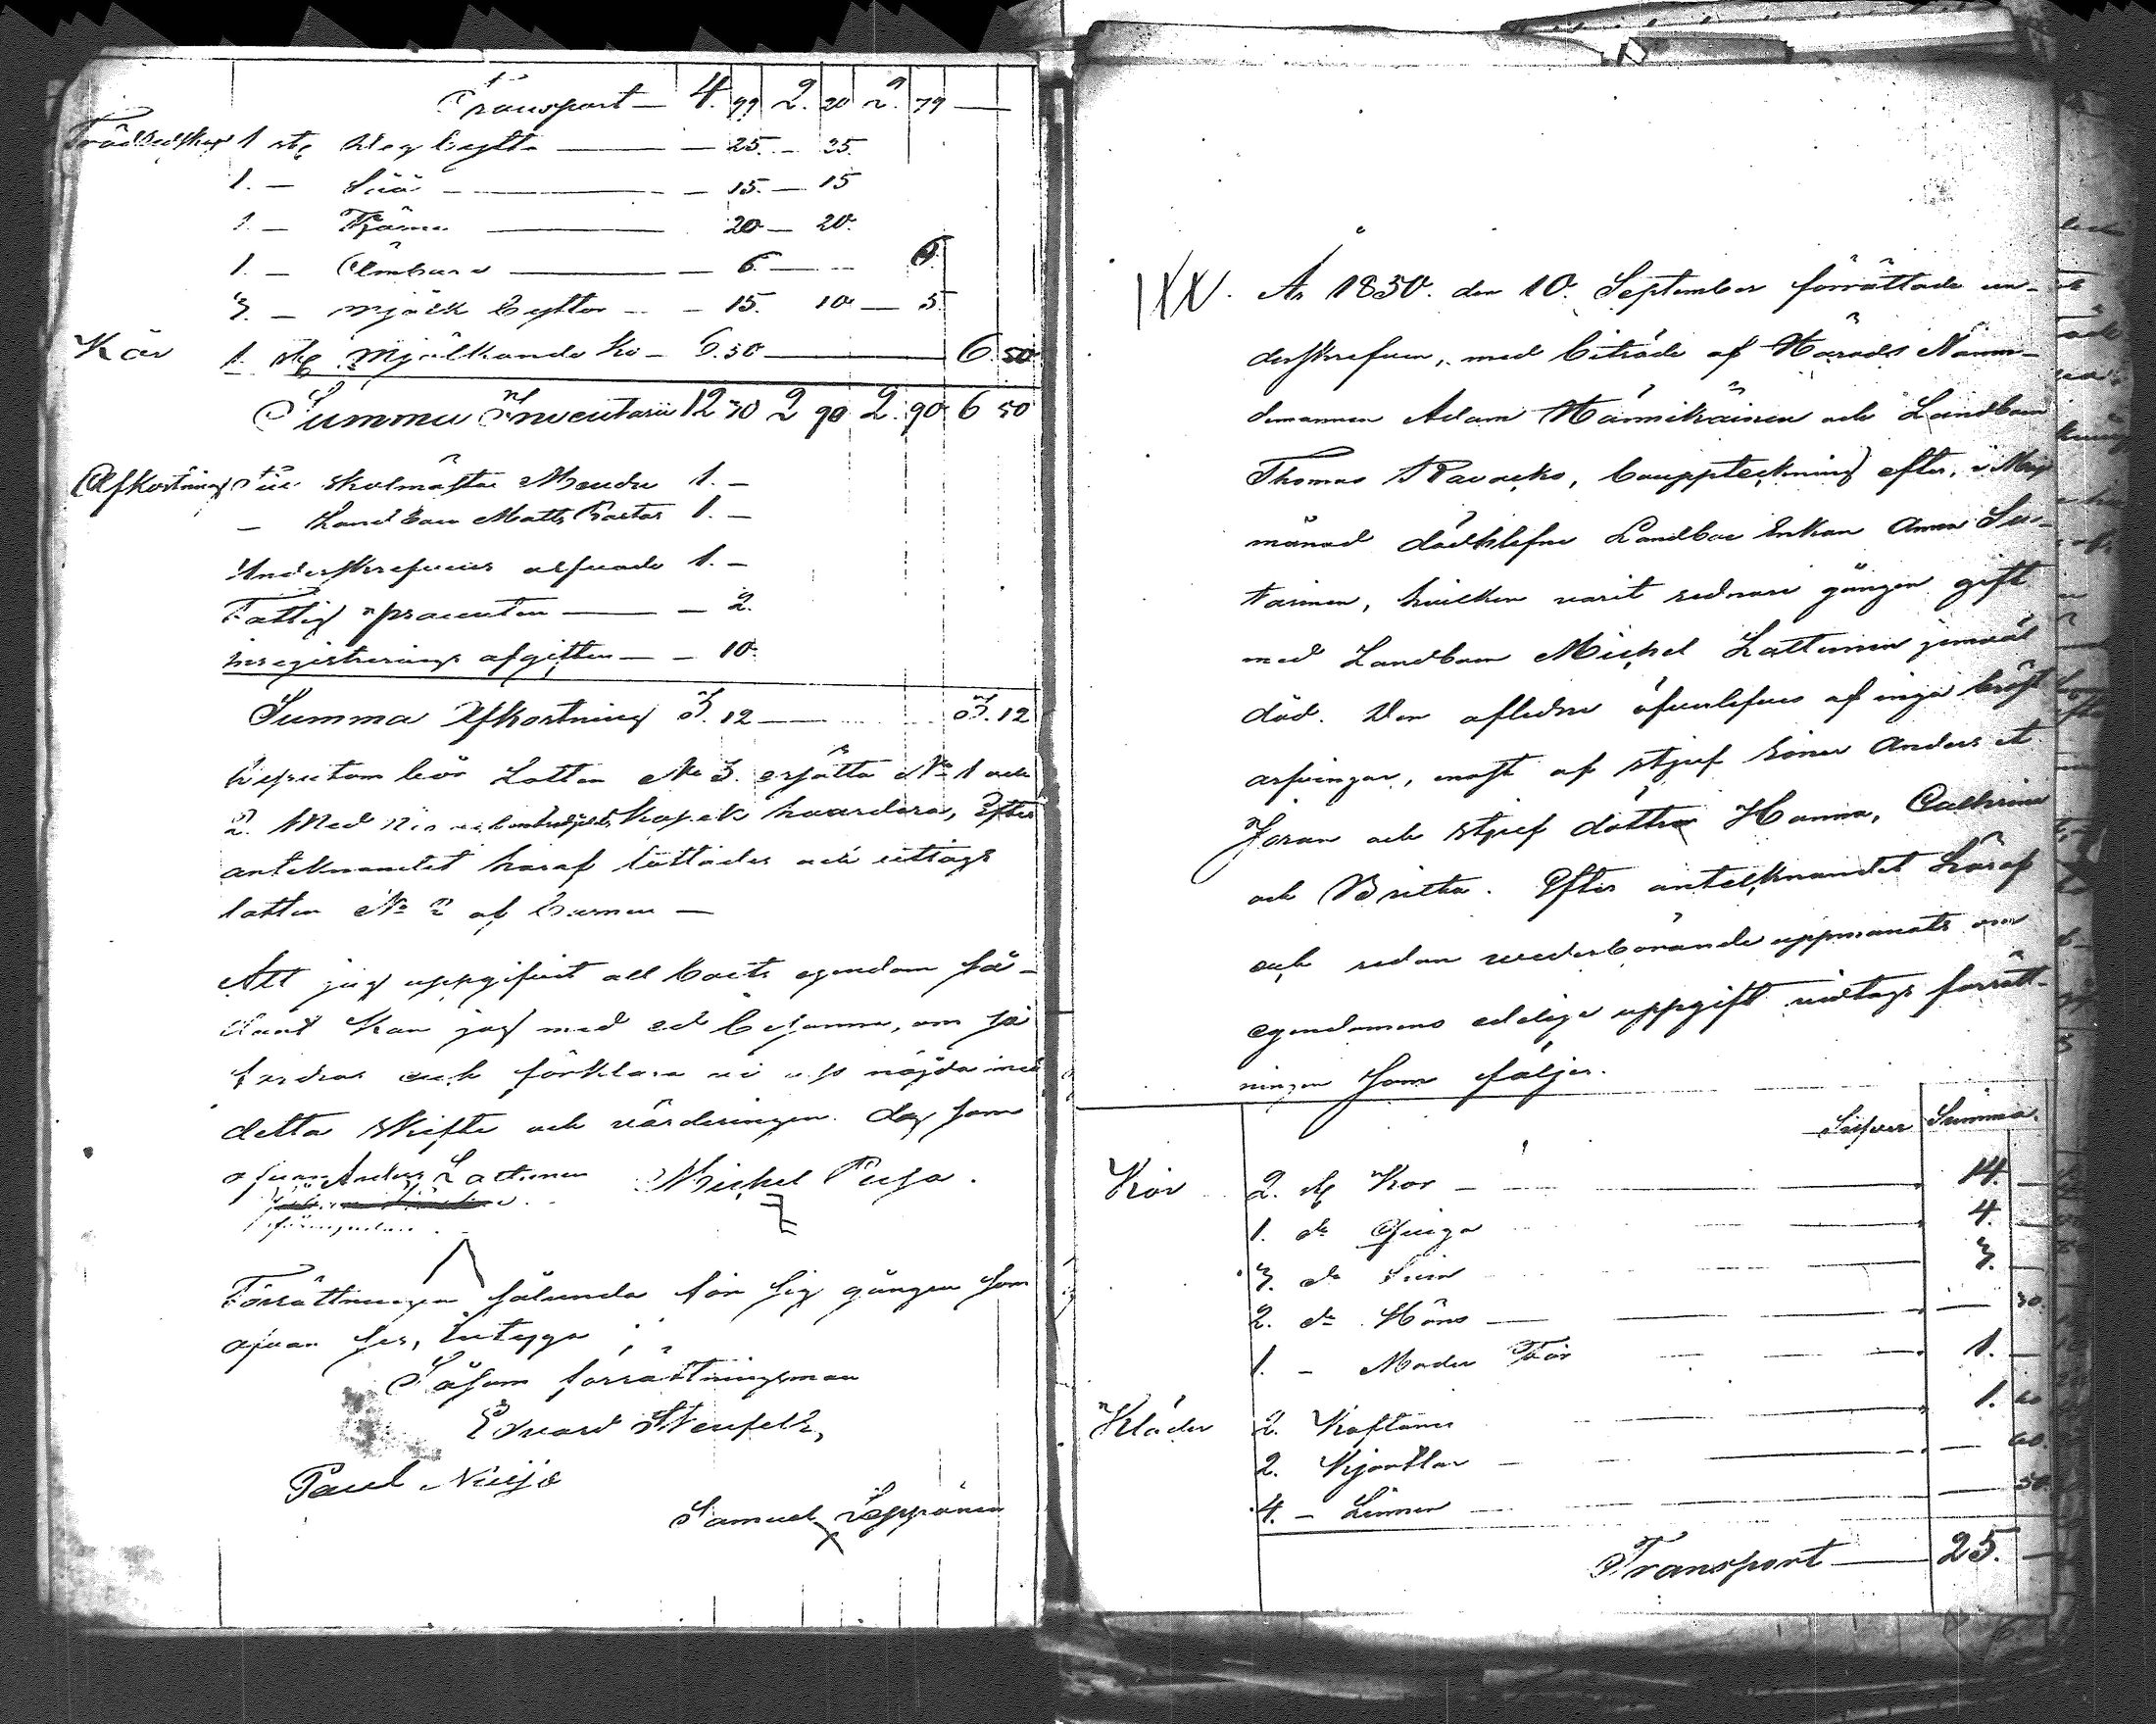 Transport — 4. 99 2. 20 2. 79 —
Trädkedskap 1 st Deg bytta — 25. — 25.
1. — Såå — 15. — 15
1. — Tjäru — 20 — 20.
1. — Ämbare — 6. — 6.
3. — Mjölk byttor — 15. 10 — 5.
Kör 1. st Mjölkande ko — 6.50 — 6.50
Summa Inventarii 12 30 2 90 2. 90 6 50
Afkortning Till Skolmästar 1. —
— Landboen Matts 1. —
Underskrefvens arfvode 1. —
Fattig procenten — 2.
inregistrerings afgiften — 10.
Summa Afkortning 3. 12 — 3. 12
bör Lotten No 3. ersätta No 1 och
2. Med kopek hvardera, Efter
antecknandet häraf lottades och uttogs
lotten No 2 af
Att jag uppgifvit all boets egendom så-
dant kan jag med ed besanna, om så
fordras och förklara vi oss nöjda med
detta skifte och värderingen. dag som
ofvan Anders Lattunen Michel Pusa.
Förrättningen sålunda för sig gången som
ofvan ses, intyga
Såsom förrättningsman
Edvard
Paul Nuija
Samuel Seppänen
IXX. År 1830. den 10. September förrättade un-
derskrefven, med biträde af Härads Nämn-
demannen Adam Hännikäinen och Landboen
Thomas Ravacko, bouppteckning efter, i Maji
månad dödblefne Landboe Enkan Anna Su-
tarinen, hvilken varit sednare gången gift
med Landboen Michel Lattunen jemväl
död. Den aflidne öfverlefves af inga bröst
arfvingar, mast af stjuf söner Anders et
Jöran och stjuf döttrar Hanna, Cathrina
och Britta. Efter antecknandet häraf
och sedan wederbörande uppmanats om
egendomens edelige uppgift vidtogs förrätt-
ningen som följer.
Silfver Summa.
Kör 2. st Kor — 14. —
1. do Qviga — 4. —
3. do Svin — 3. —
2. do Höns — 30.
1. — Moder Får — 1. —
Kläder 2. Kaftaner — 1. 60
2. Kjortlar — 60.
4. — Linnen — 50.
Transport — 25. —